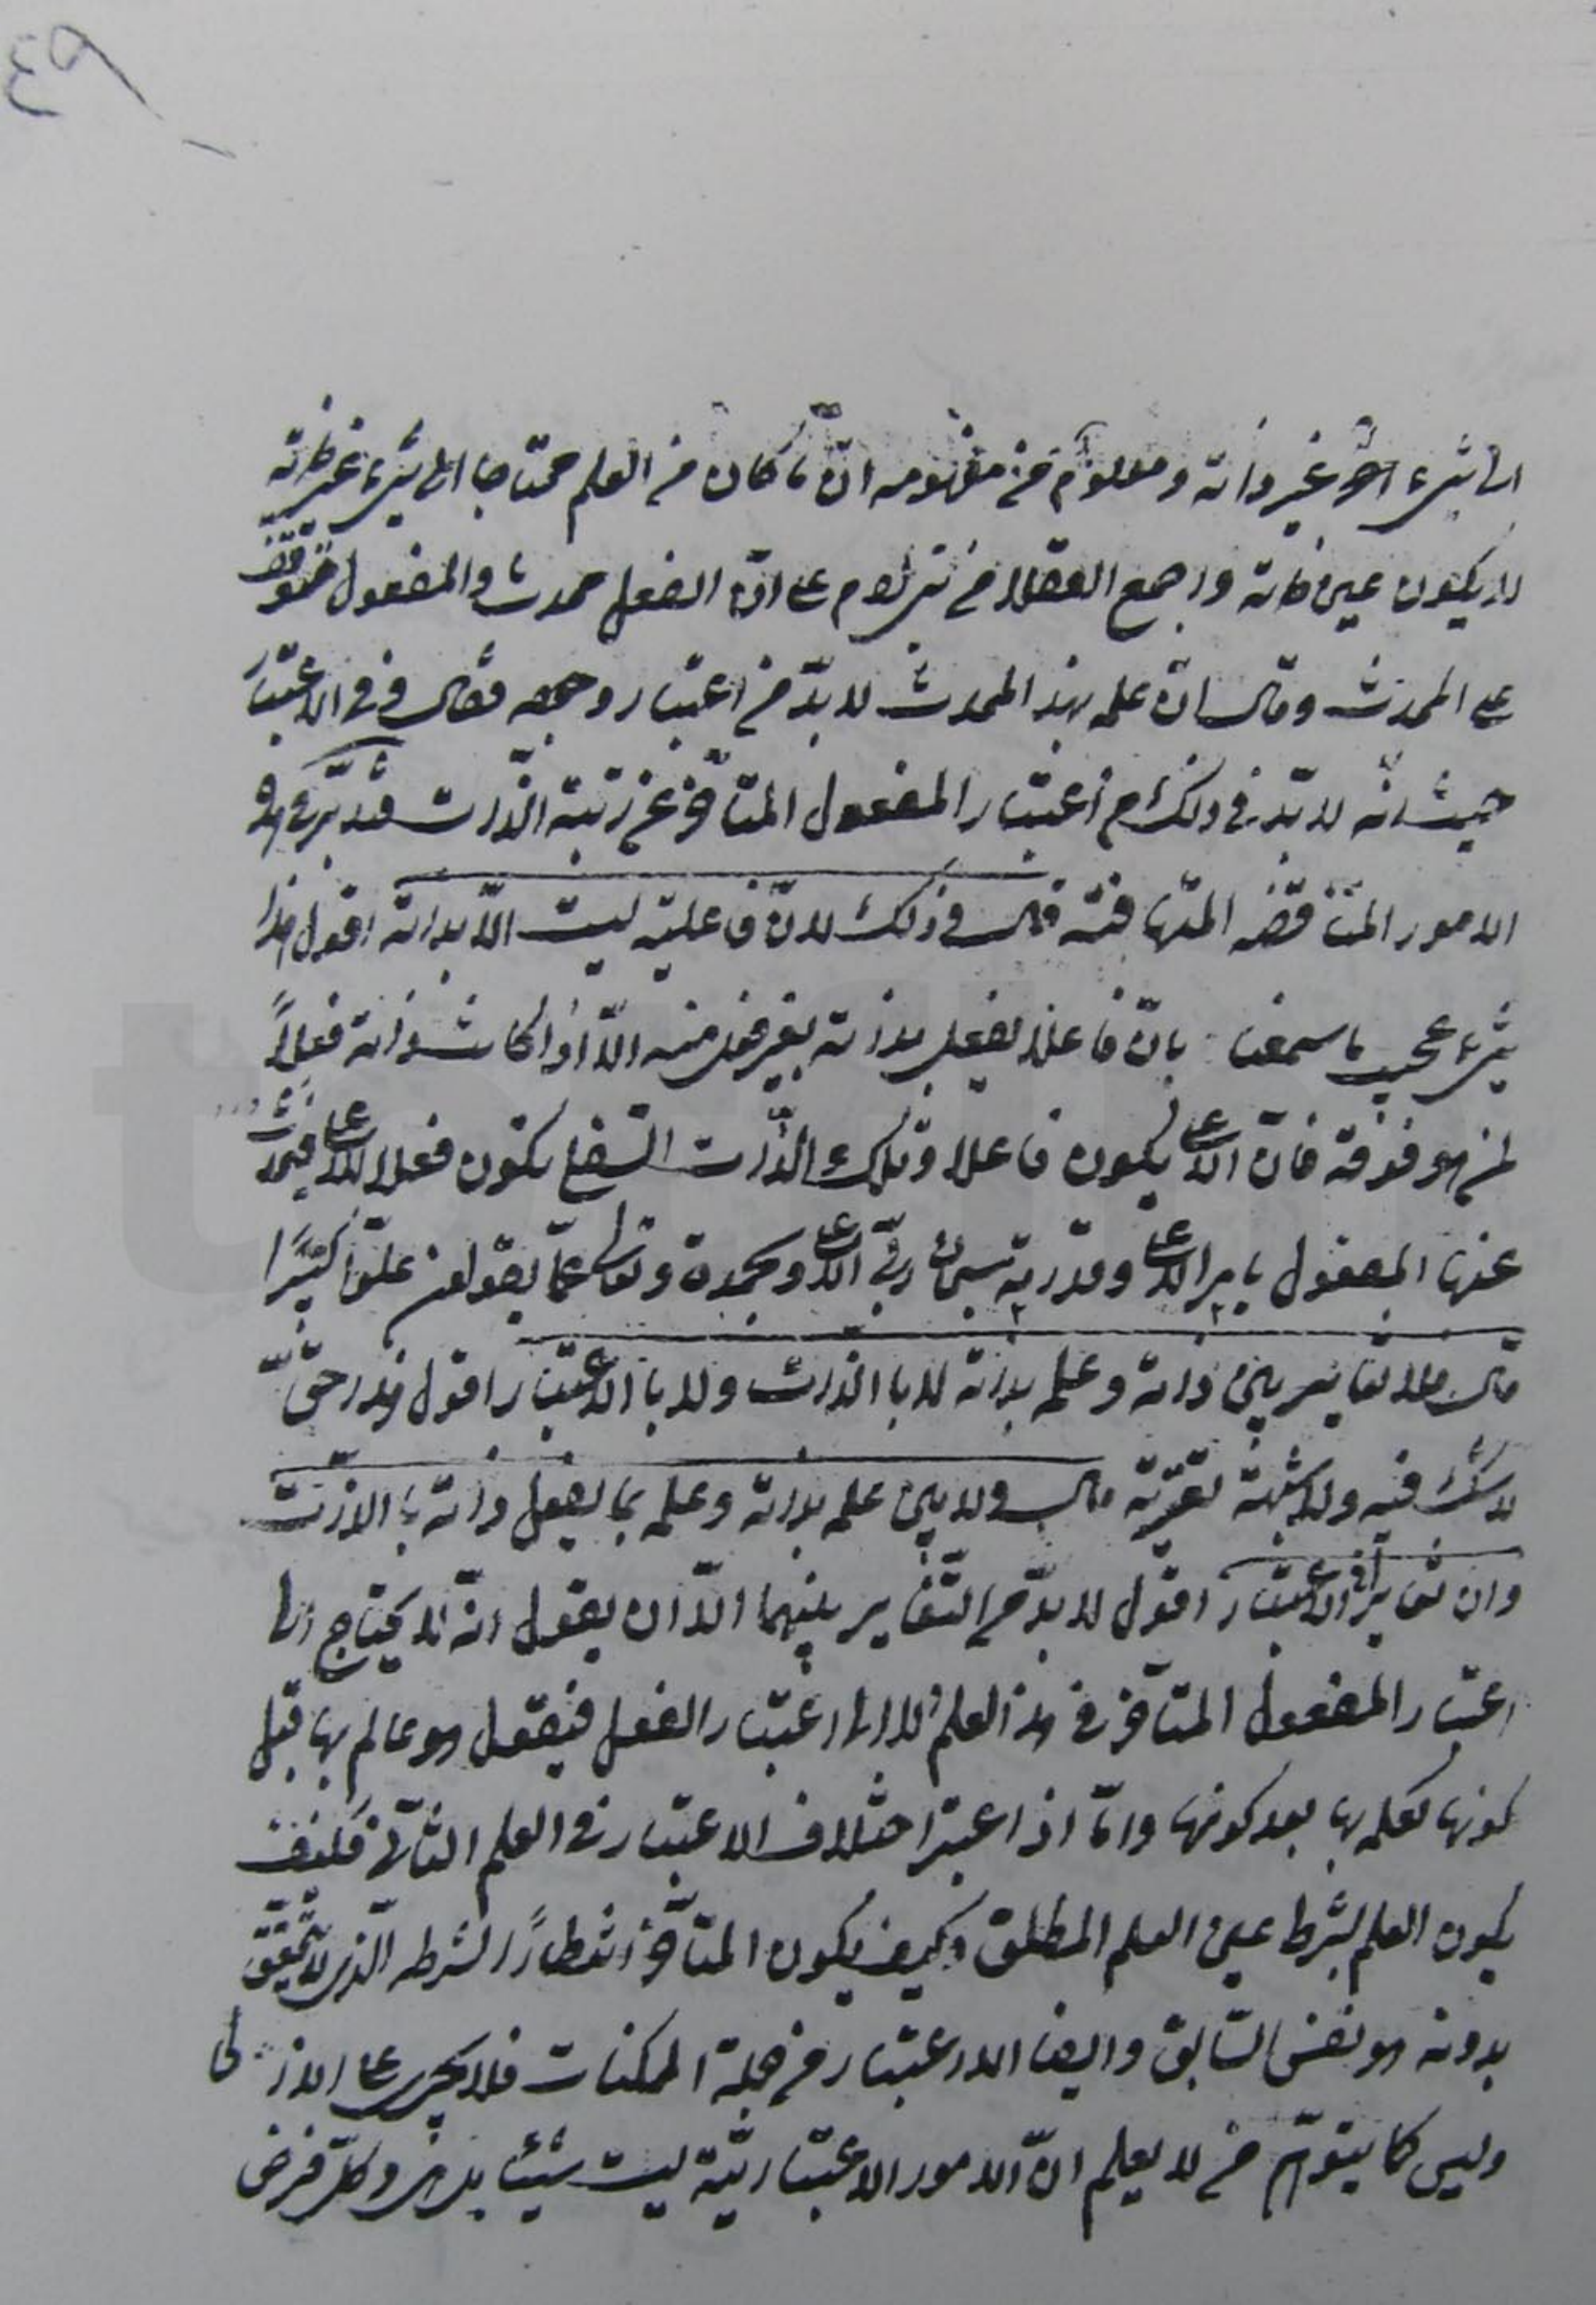 ٤٩
الى شىء اخر غير ذاته ومعلوم من مفهومه ان ما كان من العلم محتاجا الى شىء غير ذاته
لا يكون عين ذاته واجمع العقلاء من غيرهم على ان الفعل محدث والمفعول متوقف
على المحدث وقال ان علمه بهذا المحدث لا بد من اعتبار وجمعه فقال وفى الاعتبار
حيث انه لا بد فى ذلك من اعتبار المفعول المتاخر عن رتبة الذات فتدبر فى هذه
الامور المتناقضه المتهافته قال وذلك لان فاعليته ليست الا بذاته اقول هذا
شىء عجيب ما سمعنا بان فاعلا يفعل بذاته بغير فعل منه الا اذا كانت ذاته فعلا
لمن هو فوقه فان الاعلى يكون فاعلا وتلك الذات السفلى يكون فعلا للاعلى فيحدث
عنها المفعول بامر الاعلى وقدرته سبحان ربى الاعلى وبحمده وتعالى عما يقولون علوا كبيرا
قال فلا تغاير بين ذاته وعلمه بذاته لا بالذات ولا بالاعتبار اقول هذا حق
لا شك فيه ولا شبهة تعتريه قال ولا بين علمه بذاته وعلمه بما يفعل ذاته بالذات
وان تغايرا فى الاعتبار اقول لا بد من التغاير بينهما الا ان يقول انه لا يحتاج الى
اعتبار المفعول المتاخر فى هذا العلم ولا الى اعتبار الفعل فيقول هو عالم بها قبل
كونها كعلمه بها بعد كونها واما اذا اعتبر اختلاف الاعتبار فى العلم الثانى فكيف
يكون العلم بشرط عين العلم المطلق وكيف يكون المتاخر انتظارًا لشرطه الذى لا يتحقق
بدونه هو نفس السابق وايضا الاعتبار من جملة الممكنات فلا يجرى على الازلى
وليس كما يتوهم من لا يعلم ان الامور الاعتبارية ليست شيئا بل هى وكل فرض